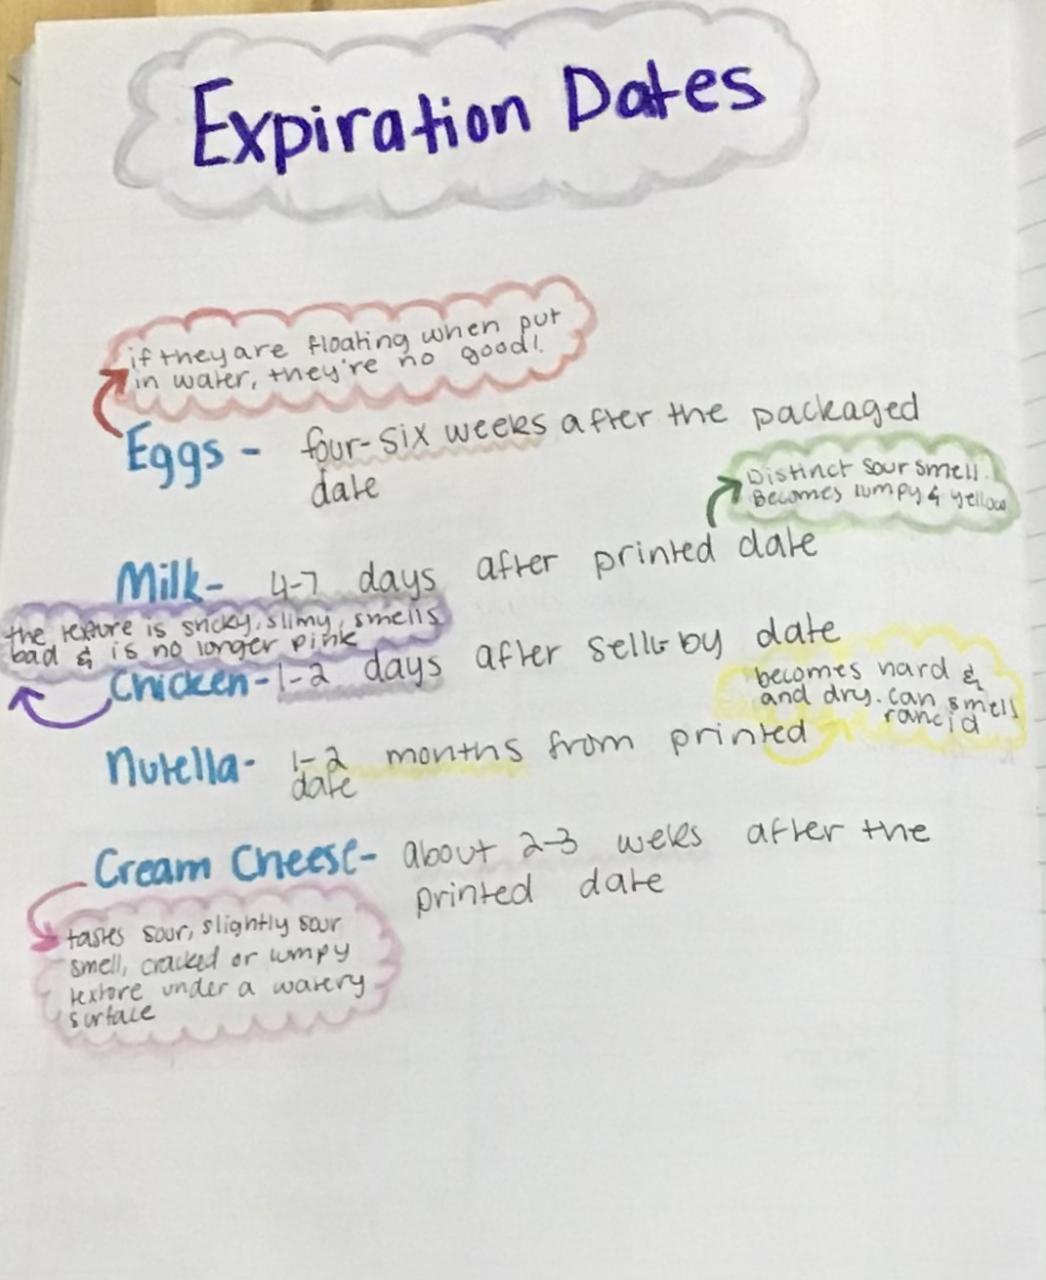 Expiration Dates
if they are floating when put
in water, they're no good!
Eggs - four-six weeks after the packaged
date
Distinct sour smell.
Becomes lumpy & yellow
Milk- 4-7 days after printed date
the texture is sticky, slimy, smells
bad & is no longer pink
Chicken- 1-2 days after sell-by date
becomes hard &
and dry. can smell
rancid
Nutella- 1-2 months from printed
date
Cream Cheese- about 2-3 weeks after the
printed date
tastes sour, slightly sour
smell, cracked or lumpy
texture under a watery
surface